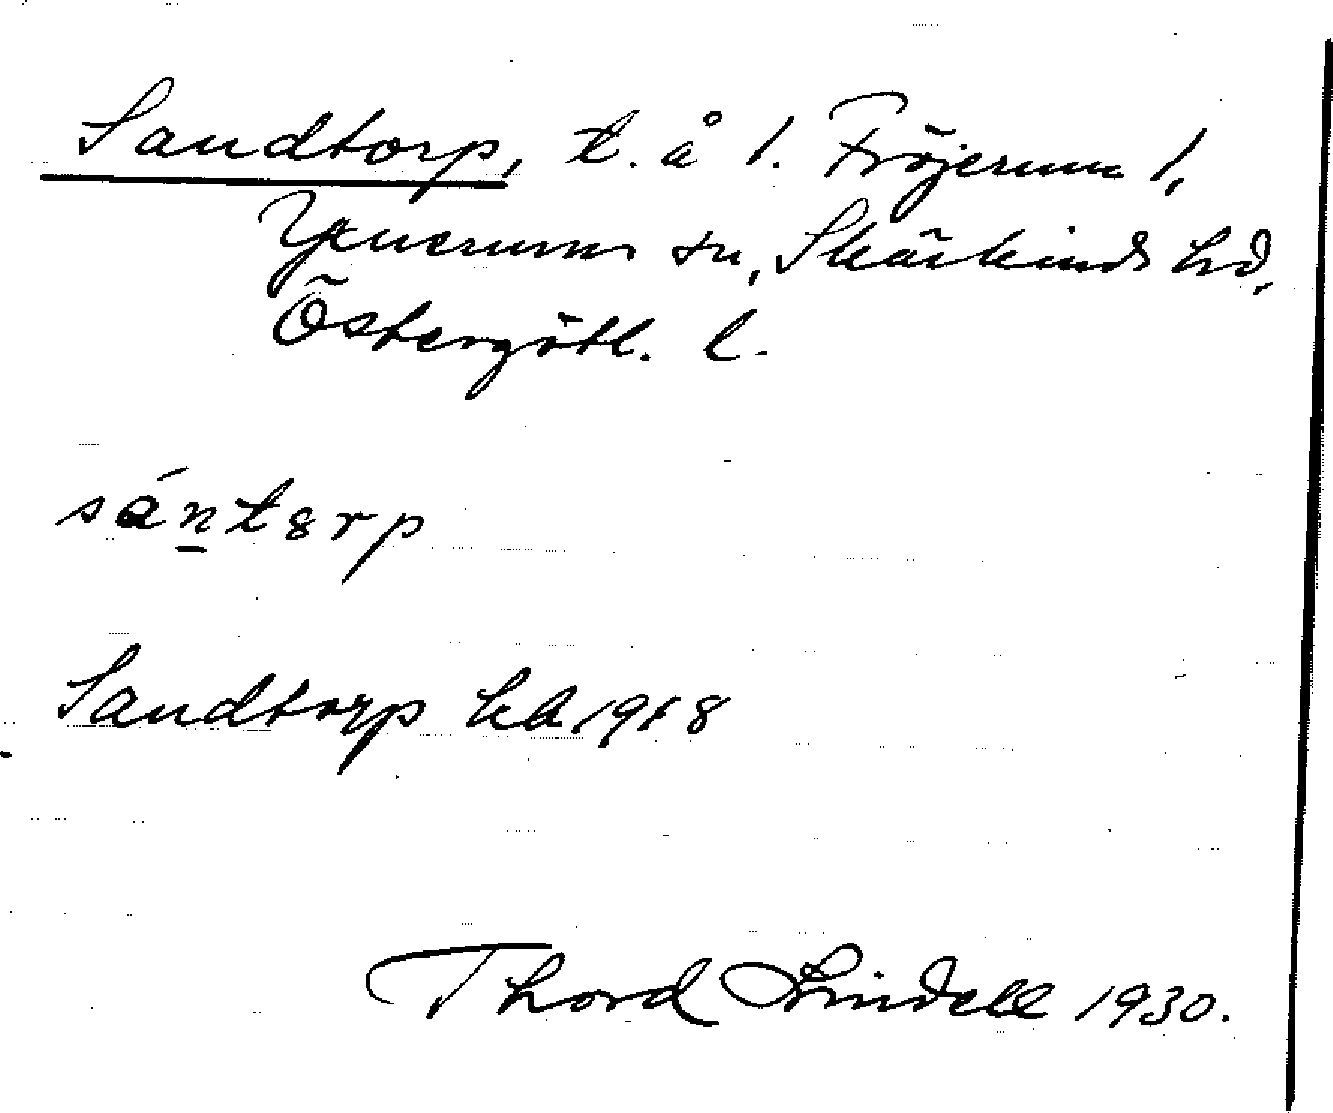 Sandtorp, t. å 1. Fröjerum 1,
Yxnerums sn, Skärkinds hd,
Östergötl. l.
sántərp
Sandtorp hd. 1918
Thord Lindell 1930.